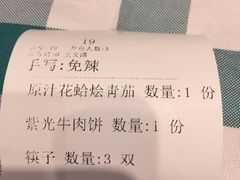 19
开台人数:3
手写:免辣
原汁花蛤烩青茄 数量:1 份
紫光牛肉饼 数量:1 份
筷子 数量:3 双